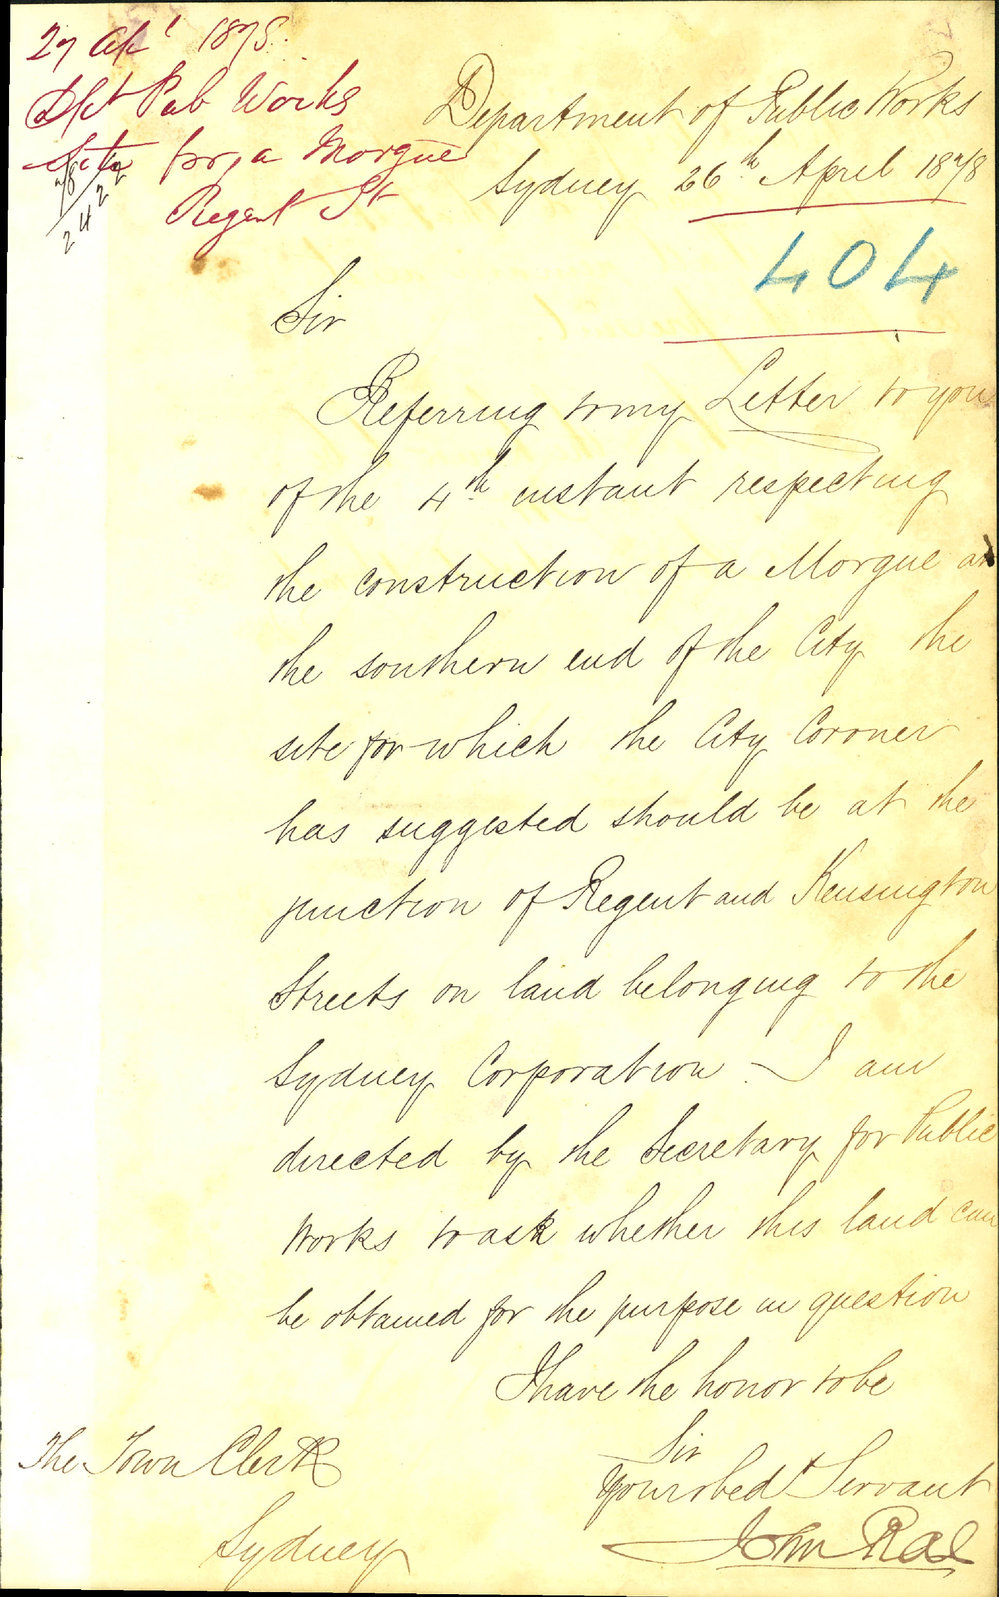 27 Apl 1878.
Dpt Pub Works
Site for a Morgue
Regent St
Department of Public Works
Sydney 26th April 1878
404
Sir
Referring to my Letter to you
of the 4th instant respecting
the construction of a Morgue at
the southern end of the City the
site for which the City Coroner
has suggested should be at the
junction of Regent and Kensington
Streets on land belonging to the
Sydney Corporation - I am
directed by the Secretary for Public
Works to ask whether this land can
be obtained for the purpose in question
I have the honor to be
Sir
Your obedt Servant
John Rae
The Town Clerk
Sydney